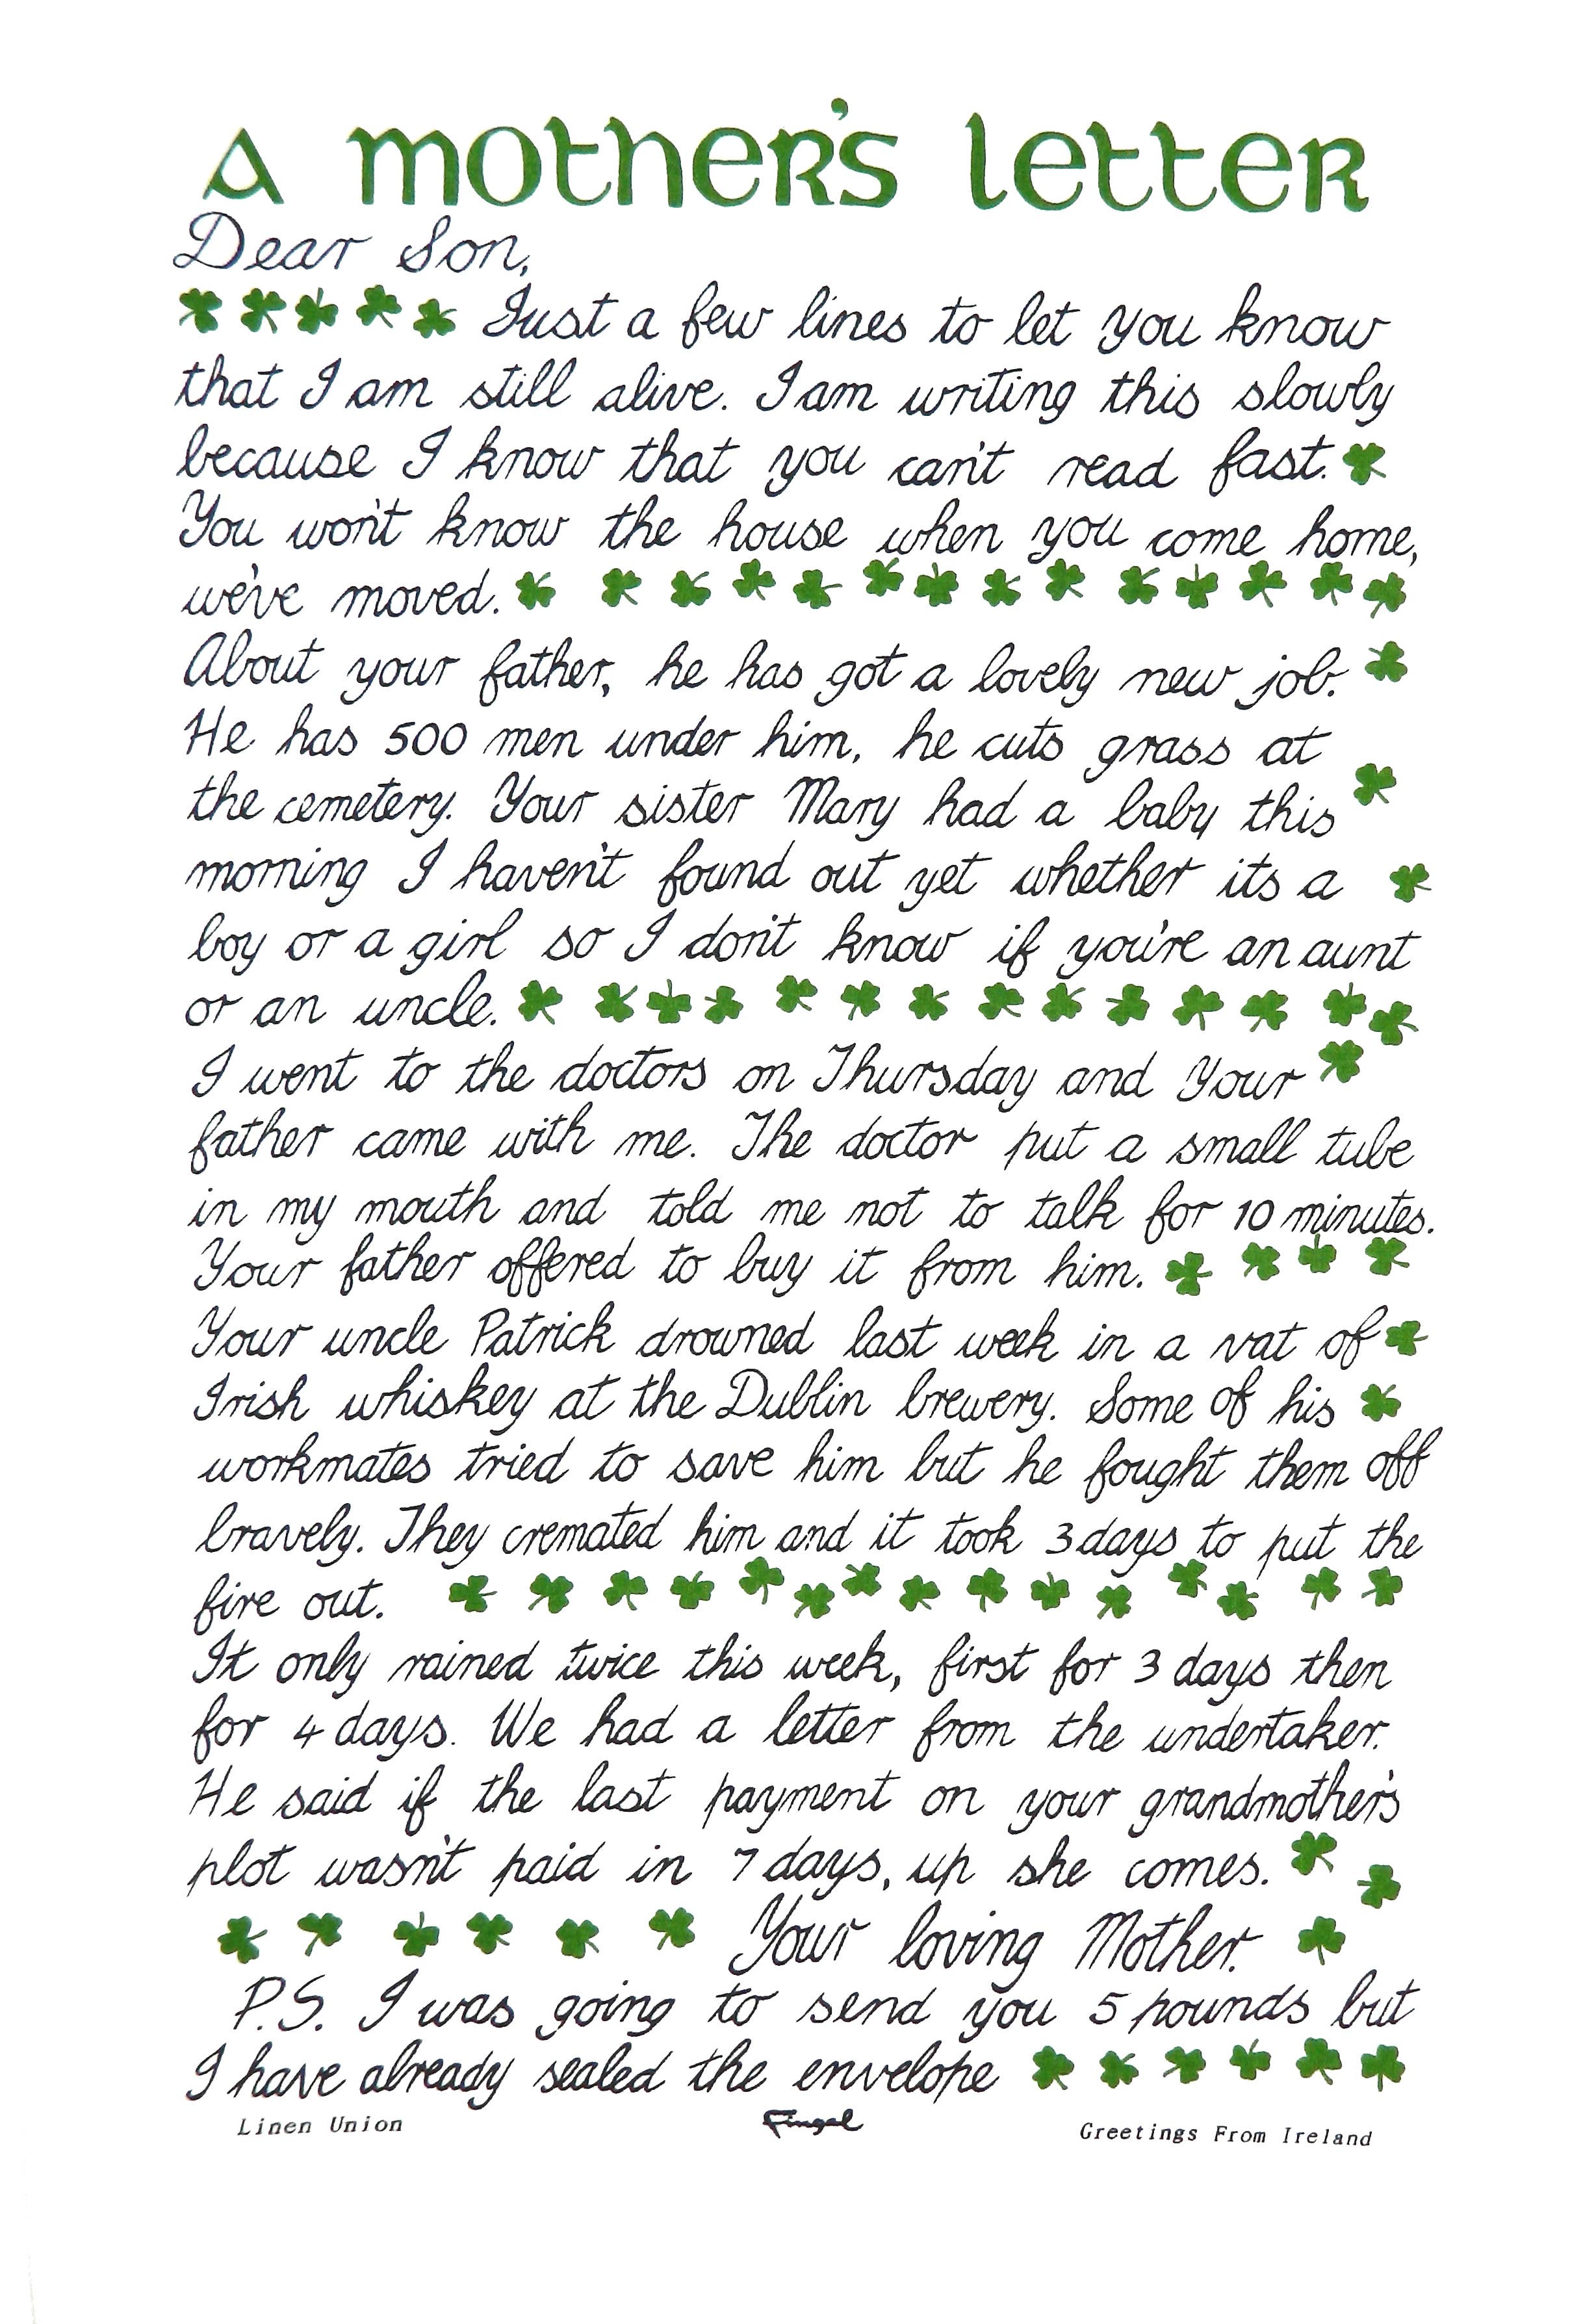 A mother's letter
Dear Son,
Just a few lines to let you know
that I am still alive. I am writing this slowly
because I know that you can't read fast.
You won't know the house when you come home,
we've moved.
About your father, he has got a lovely new job.
He has 500 men under him, he cuts grass at
the cemetery. Your sister Mary had a baby this
morning I haven't found out yet whether its a
boy or a girl so I don't know if you're an aunt
or an uncle.
I went to the doctors on Thursday and Your
father came with me. The doctor put a small tube
in my mouth and told me not to talk for 10 minutes.
Your father offered to buy it from him.
Your uncle Patrick drowned last week in a vat of
Irish whiskey at the Dublin brewery. Some of his
workmates tried to save him but he fought them off
bravely. They cremated him and it took 3 days to put the
fire out.
It only rained twice this week, first for 3 days then
for 4 days. We had a letter from the undertaker.
He said if the last payment on your grandmother's
plot wasn't paid in 7 days, up she comes.
Your loving Mother.
P.S. I was going to send you 5 pounds but
I have already sealed the envelope
Linen Union Fingal Greetings From Ireland